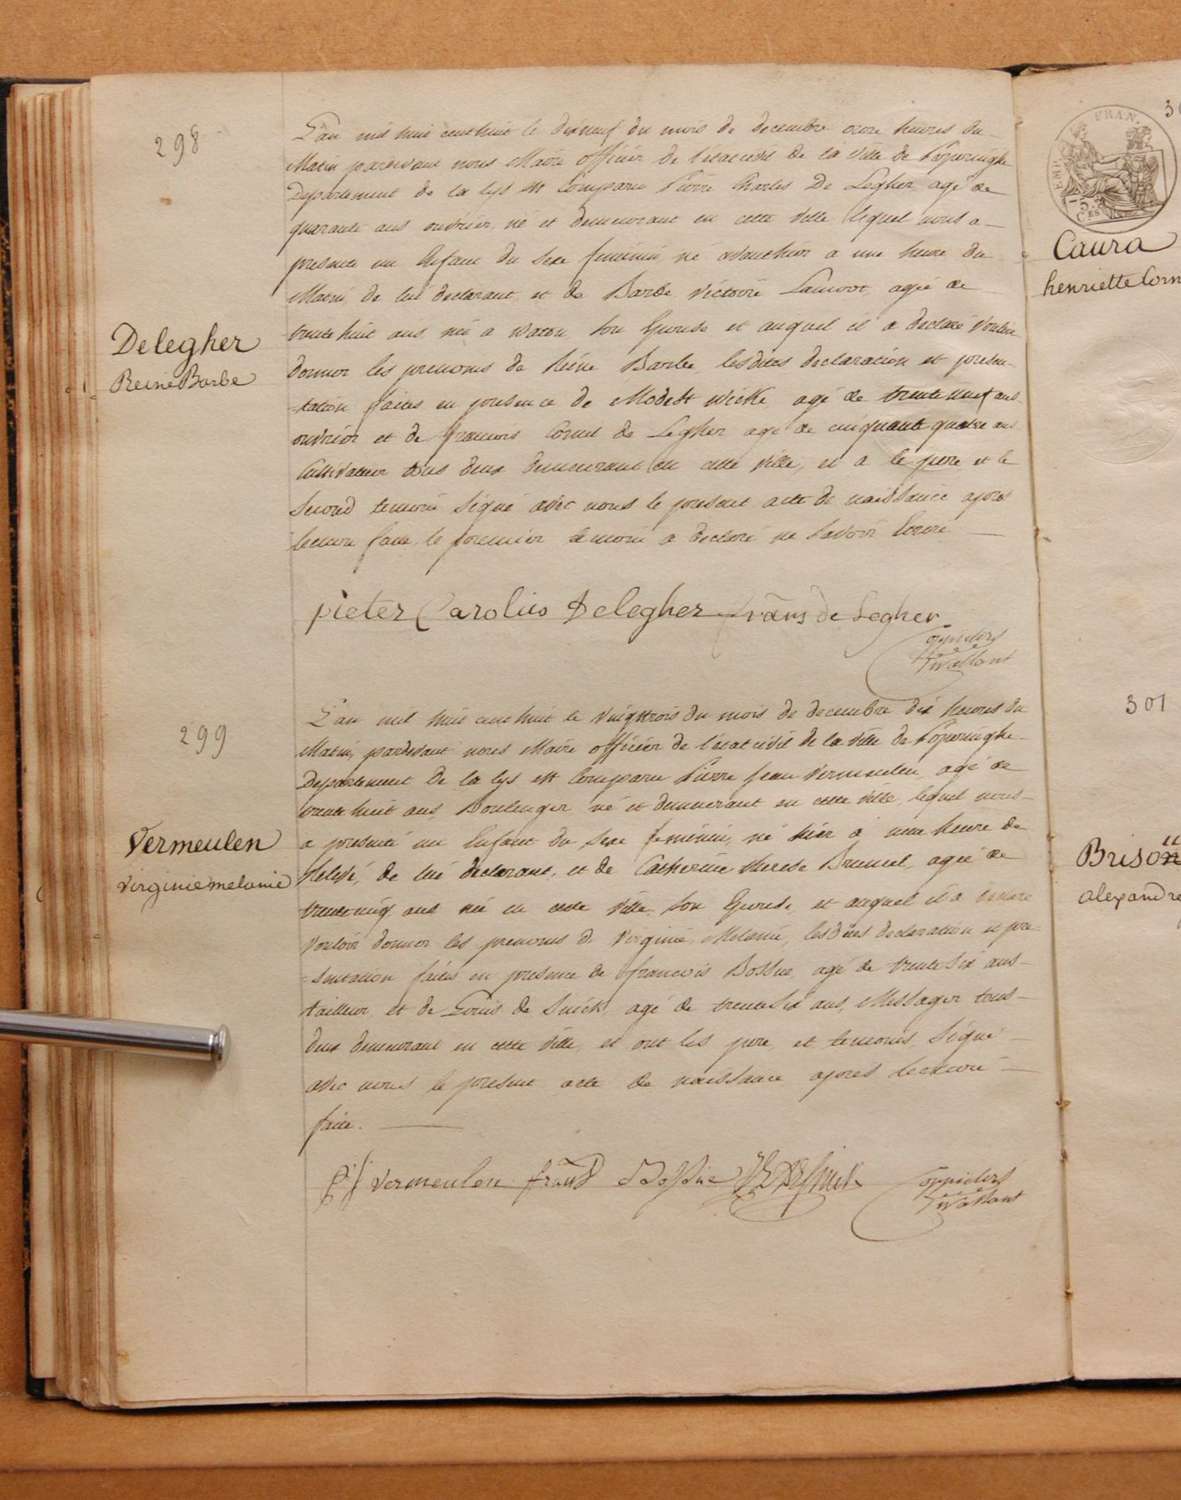 298
L'an mil huit cent huit le dixneuf du mois de decembre onze heures du
Matin pardevant nous Maire officier de l'état civil de la ville de Poperinghe
Departement de la lys est Comparu Pierre Charles De Legher agé de
quarante ans ouvrier né et demeurant en cette ville lequel nous a
presenté un Enfant du sexe feminin né avanthier a une heure du
Matin, de lui declarant et de Barbe Victoire agée de
trente huit ans née a Watou son Epouse et auquel il a declaré vouloir
donner les prenoms de Reine Barbe, lesdites declaration et presen-
Delegher
Reine Barbe
=tation faites en presence de Modest agé de trente neuf ans
ouvrier et de francois Cornil de Legher agé de cinquante quatre ans
Cultivateur tous deux demeurant en cette ville, et a le pere et le
second temoin signé avec nous le present acte de naissance apres
lecture faite, le premier temoin a declaré ne savoir Ecrire
pieter Carolus Delegher frans de Legher
299
L'an mil huit cent huit le vingttrois du mois de decembre dix heures du
Matin, pardevant nous Maire officier de l'état civil de la ville de Poperinghe
Departement de la lys est Comparu Pierre jean Vermeulen, agé de
trente huit ans Boulenger né et demeurant en cette ville, lequel nous
a presenté un Enfant du sexe feminin, né hier à une heure de
relevé, de lui declarant, et de Catherine therese agée de
Vermeulen
virginie melanie
trenteneuf ans née en cette ville son Epouse, et auquel il a declaré
vouloir donner les prenoms de Virginie Melanie, lesdites declaration et pre-
=sentation faites en presence de francois Bossue, agé de trente six ans
tailleur, et de Louis de agé de trente six ans, Messager tous
deux demeurant en cette ville, et ont les pere et temoins signé
avec nous le present acte de naissance apres lecture
faite.
p j vermeulen frans
EMP. FRAN.
Caura
henriette Corn
301
Brison
alexandre